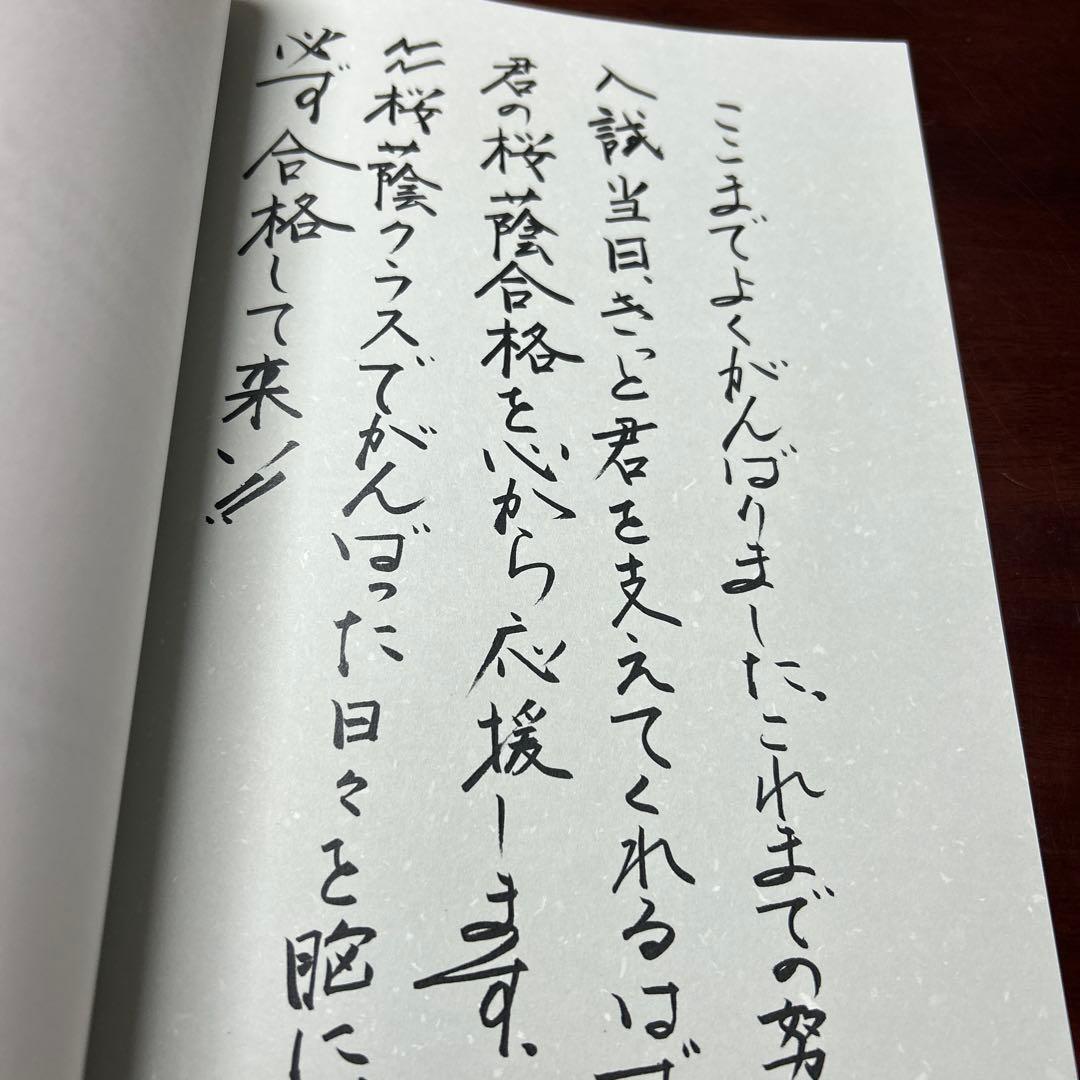 ここまでよくがんばりました、これまでの努
入試当日、きっと君を支えてくれるはず
君の桜蔭合格を心から応援します、
NN桜蔭クラスでがんばった日々を胸に、
必ず合格して来い!!